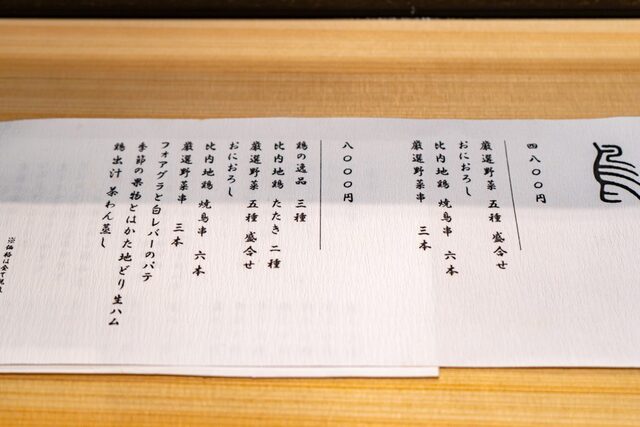 四八〇〇円
厳選野菜 五種 盛合せ
おにおろし
比内地鶏 焼鳥串 六本
厳選野菜串 三本
八〇〇〇円
鶏の逸品 三種
比内地鶏 たたき 二種
厳選野菜 五種 盛合せ
おにおろし
比内地鶏 焼鳥串 六本
厳選野菜串 三本
フォアグラと白レバーのパテ
季節の果物とはかた地どり 生ハム
鶏出汁 茶わん蒸し
※価格は全て税